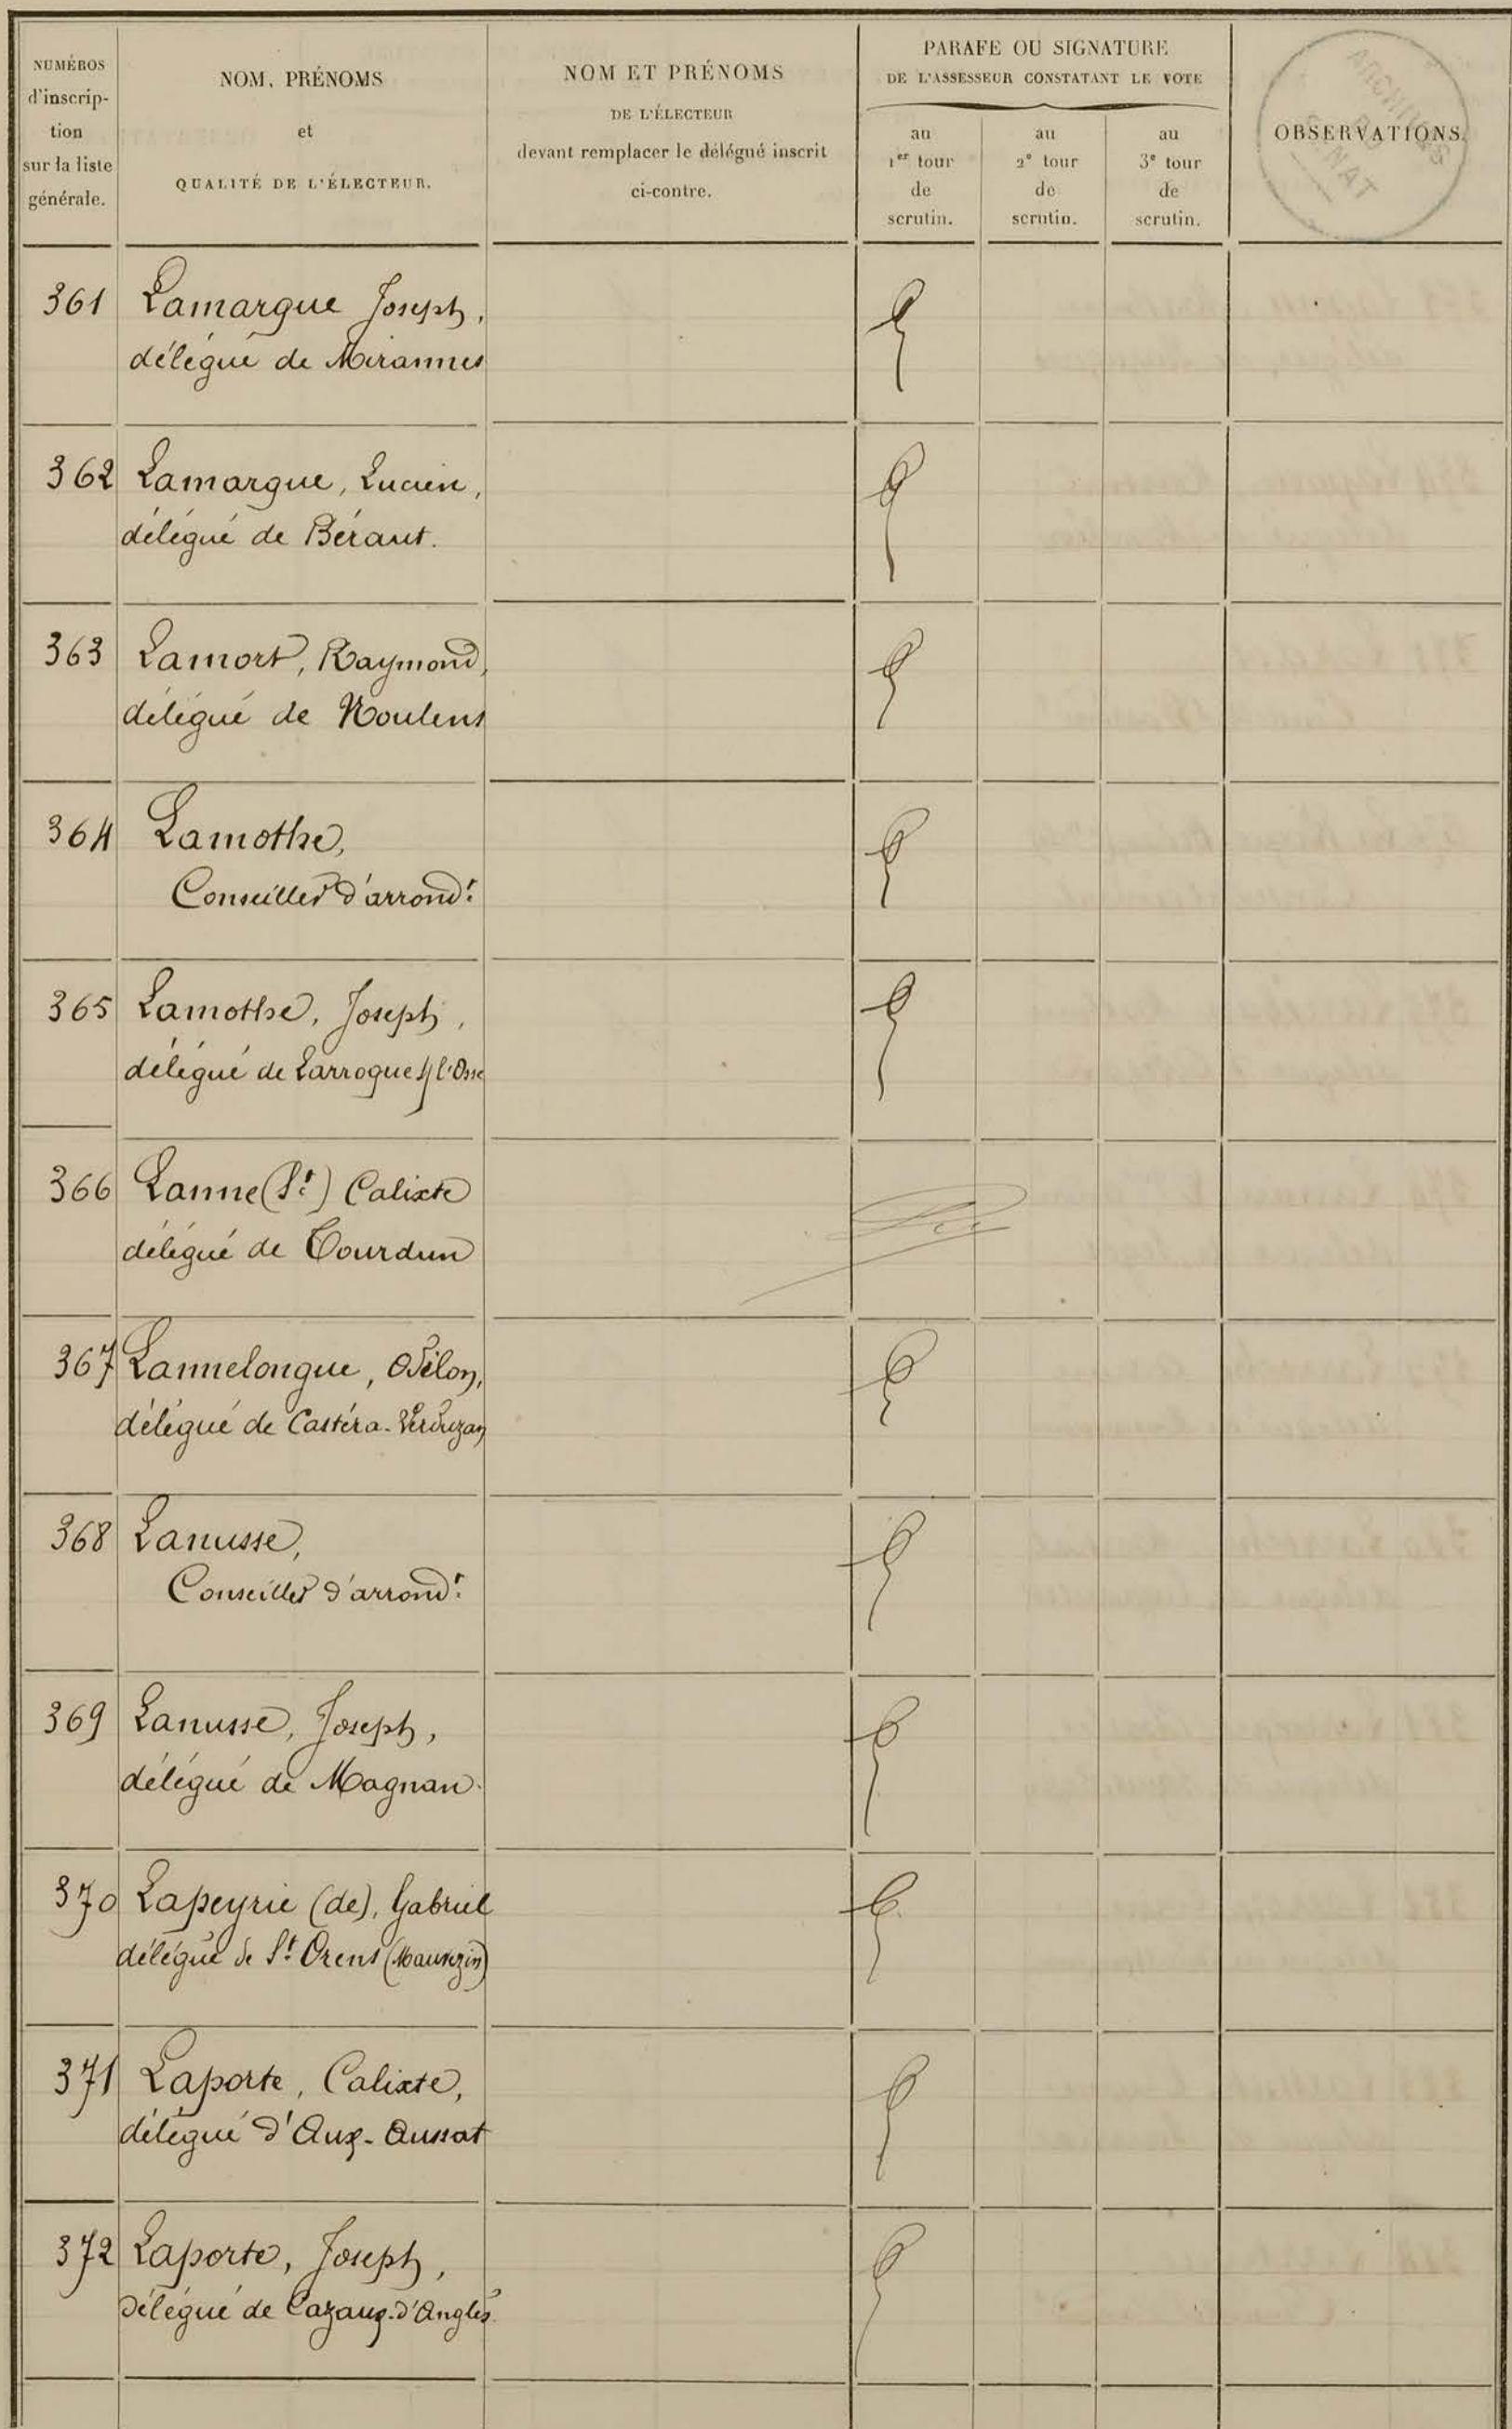 NUMÉROS
d'inscrip-
tion
sur la liste
générale.
NOM, PRÉNOMS
et
QUALITÉ DE L'ÉLECTEUR.
NOM ET PRÉNOMS
DE L'ÉLECTEUR
devant remplacer le délégué inscrit
ci-contre.
PARAFE OU SIGNATURE
DE L'ASSESSEUR CONSTATANT LE VOTE
au
1er tour
de
scrutin.
au
2e tour
de
scrutin.
au
3e tour
de
scrutin.
OBSERVATIONS.
ARCHIVES
DU
SÉNAT
361 Lamargue Joseph,
délégué de Mirannes
362 Lamargue, Lucien,
délégué de Béraut.
363 Lamort, Raymond,
délégué de Noulens
364 Lamothe,
Conseiller d'arrondt
365 Lamothe, Joseph,
délégué de Larroque s/ l'Osse
366 Lanne (St) Calixte
délégué de Tourdun
367 Lannelongue, Odilon,
délégué de Castéra-Verduzan
368 Lanusse,
Conseiller d'arrondt
369 Lanusse, Joseph,
délégué de Magnan.
370 Lapeyrie (de), Gabriel
délégué de St Orens (Mauvezin)
371 Laporte, Calixte,
délégué d'Aux-Aussat
372 Laporte, Joseph,
délégué de Cazaux-d'Anglès.